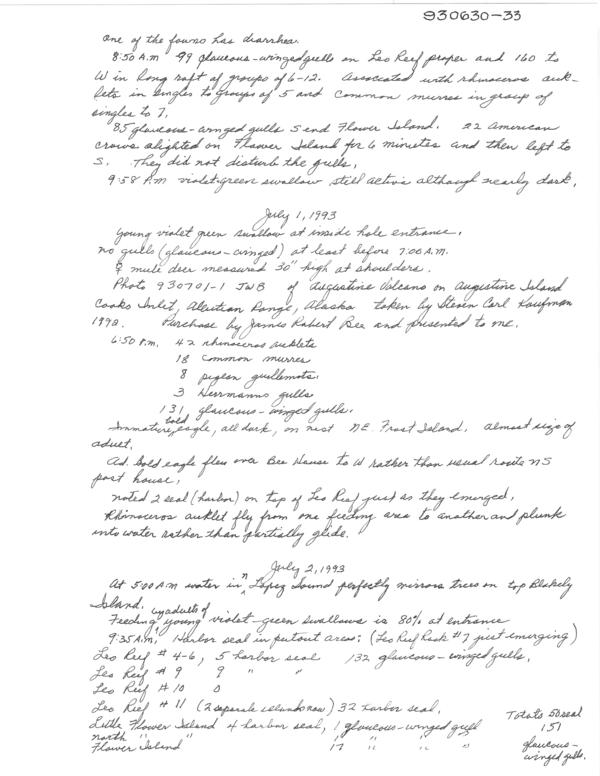 930630-33
One of the fawns has diarrhea.
8:50 A.M 99 glaucous-winged gulls on Leo Reef proper and 160 to
W in long raft of groups of 6-12. Associated with rhinoceros auk-
lets in singles to groups of 5 and common murres in group of
singles to 7.
85 glaucous-winged gulls S end Flower Island. 22 American
crows alighted on Flower Island for 6 minutes and then left to
S. They did not disturb the gulls.
9:58 P.M violet-green swallow still active although nearly dark.
July 1, 1993
Young violet green swallow at inside hole entrance.
No gulls (glaucous-winged) at least before 7:00 A.M.
♀ mule deer measured 30" high at shoulders.
Photo 930701-1 JWB of Augustine Volcano on Augustine Island
Cooks Inlet, Aleutian Range, Alaska taken by Steven Carl Kaufman
1993. Purchase by James Robert Bee and presented to me.
6:50 P.M. 42 rhinoceros auklets
18 common murres
8 pigeon guillemots.
3 Herrmanns gulls
131 glaucous-winged gulls.
Immature bald eagle, all dark, on nest NE Frost Island. almost size of
adult.
Ad. bald eagle flew over Bee House to W rather than usual route NS
past house.
Noted 2 seal (harbor) on top of Leo Reef just as they emerged.
Rhinoceros auklet fly from one feeding area to another and plunk
into water rather than partially glide.
July 2, 1993
At 5:00 A.M water in Lopez Sound perfectly mirrors trees on top Blakely
Island.
Feeding by adults of young violet-green swallows is 80% at entrance
9:35 A.M. Harbor seal in putout areas: (Leo Reef Rock #7 just emerging)
Leo Reef # 4-6, 5 harbor seal 132 glaucous-winged gulls.
Leo Reef # 9 9 " "
Leo Reef # 10 0
Leo Reef # 11 (2 separate islands now) 32 harbor seal.
Little Flower Island 4 harbor seal, 1 glaucous-winged gull
North " "
Flower Island " 17 " " "
Totals 50 seal
151
glaucous-
winged gulls.